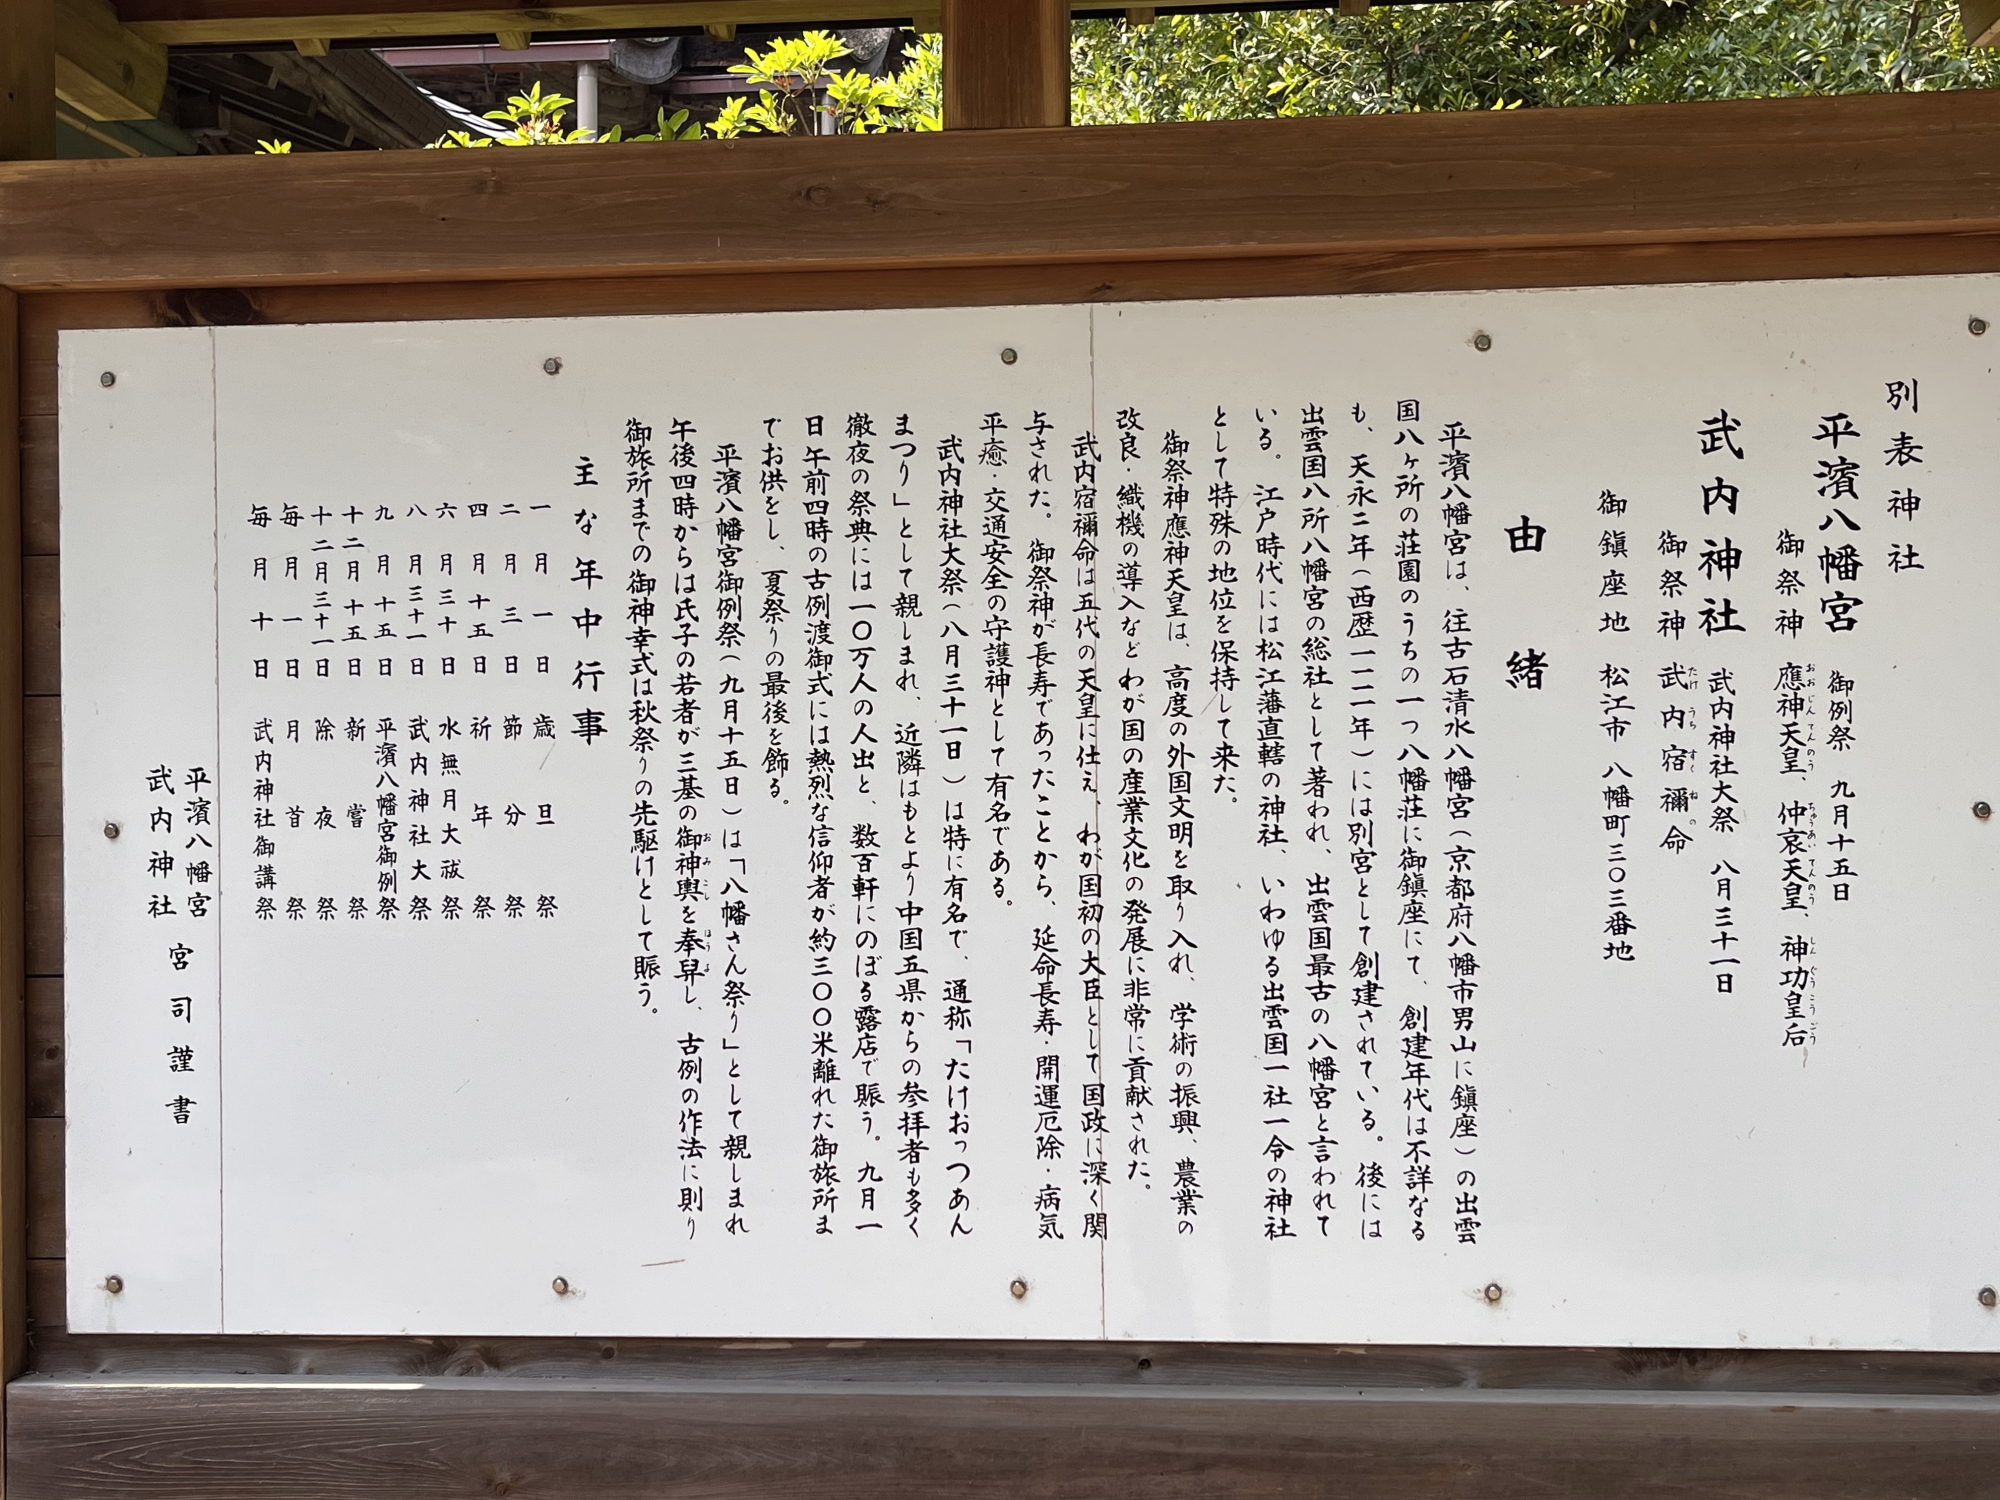 別表神社
平濱八幡宮 御例祭 九月十五日
御祭神 應神天皇、仲哀天皇、神功皇后
おおじんてんのう ちゅうあいてんのう しんぐうこうごう
武内神社 武内神社大祭 八月三十一日
御祭神 武内宿禰命
たけうちすくねの
御鎮座地 松江市八幡町三〇三番地
由緒
平濱八幡宮は、往古石清水八幡宮(京都府八幡市男山に鎮座)の出雲
国八ヶ所の荘園のうちの一つ八幡荘に御鎮座にて、創建年代は不詳なる
も、天永二年(西歴一一一一年)には別宮として創建されている。後には
出雲国八所八幡宮の総社として著われ、出雲国最古の八幡宮と言われて
いる。江戸時代には松江藩直轄の神社、いわゆる出雲国一社一令の神社
として特殊の地位を保持して来た。
御祭神應神天皇は、高度の外国文明を取り入れ、学術の振興、農業の
改良・織機の導入などわが国の産業文化の発展に非常に貢献された。
武内宿禰命は五代の天皇に仕え、わが国初の大臣として国政に深く関
与された。御祭神が長寿であったことから、延命長寿・開運厄除・病気
平癒・交通安全の守護神として有名である。
武内神社大祭(八月三十一日)は特に有名で、通称「たけおっつあん
まつり」として親しまれ、近隣はもとより中国五県からの参拝者も多く
徹夜の祭典には一〇万人の人出と、数百軒にのぼる露店で賑う。九月一
日午前四時の古例渡御式には熱烈な信仰者が約三〇〇米離れた御旅所ま
でお供をし、夏祭りの最後を飾る。
平濱八幡宮御例祭(九月十五日)は「八幡さん祭り」として親しまれ
午後四時からは氏子の若者が三基の御神輿を奉舁し、古例の作法に則り
おみこし ほうよ
御旅所までの御神幸式は秋祭りの先駆けとして賑う。
主な年中行事
一月一日 歳旦祭
二月三日 節分祭
四月十五日 祈年祭
六月三十日 水無月大祓祭
八月三十一日 武内神社大祭
九月十五日 平濱八幡宮御例祭
十二月十五日 新嘗祭
十二月三十一日 除夜祭
毎月一日 月首祭
毎月十日 武内神社御講祭
平濱八幡宮
武内神社
宮司謹書